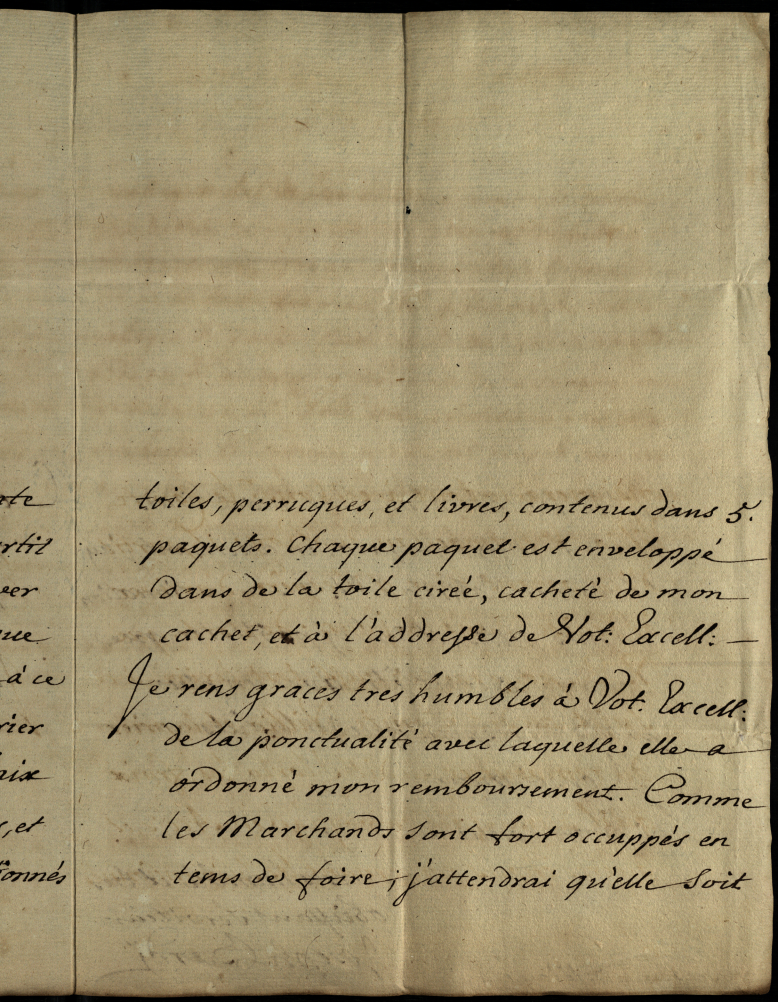 toiles, perruques, et livres, contenus dans 5.
paquets. Chaque paquet est enveloppé
dans de la toile cireé, cacheté de mon
cachet, et à l'addresse de Vot: Excell: —
Je rens graces tres humbles à Vot. Excell:
de la ponctualité avec laquelle elle a
ordonné mon remboursement. Comme
les Marchands sont fort occuppés en
tems de foire; j'attendrai qu'elle soit
ate
rtit
ver
que
à ce
rier
aix
, et
ionnés